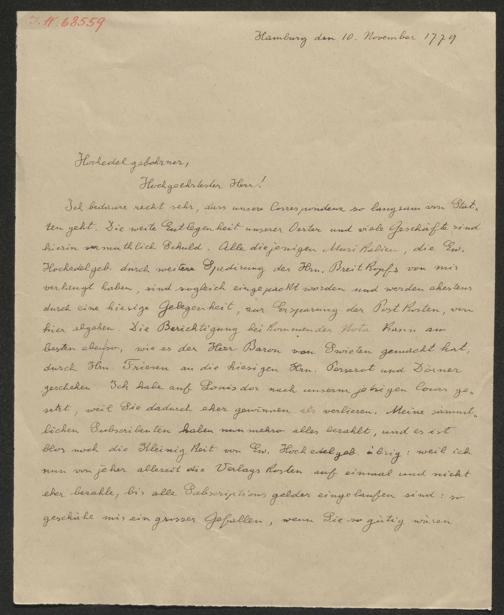 I.N. 68559
Hamburg den 10. November 1779
Hochedelgebohrner,
Hochgeehrtester Herr!
Ich bedaure recht sehr, dass unsere Correspondenz so langsam von Stat-
ten geht. Die weite Entlegenheit unserer Oerter und viele Geschäfte sind
hierin vermuthlich Schuld. Alle diejenigen Musikalien, die Ew.
Hochedelgeb. durch weitere Spedierung des Hrn. Breitkopfs von mir
verlangt haben, sind sogleich eingepackt worden und werden ehestens
durch eine hiesige Gelegenheit, zur Ersparung der Postkosten, von
hier abgehen. Die Berichtigung beikommender Nota kann am
besten ebenso, wie es der Herr Baron von Swieten gemacht hat,
durch Hrn. Friesen an die hiesigen Hrn. und Dörner
geschehen. Ich habe auf Louisdor nach unserm jetzigen Cours ge-
setzt, weil Sie dadurch eher gewinnen als verlieren. Meine sämmt-
lichen Subscribenten haben nunmehro alles bezahlt, und es ist
blos noch die Kleinigkeit von Ew. Hochedelgeb. übrig: weil ich
nun von jeher allezeit die Verlagskosten auf einmal und nicht
eher bezahle, bis alle Subscriptionsgelder eingelaufen sind: so
geschähe mir ein grosser Gefallen, wenn Sie so gütig wären